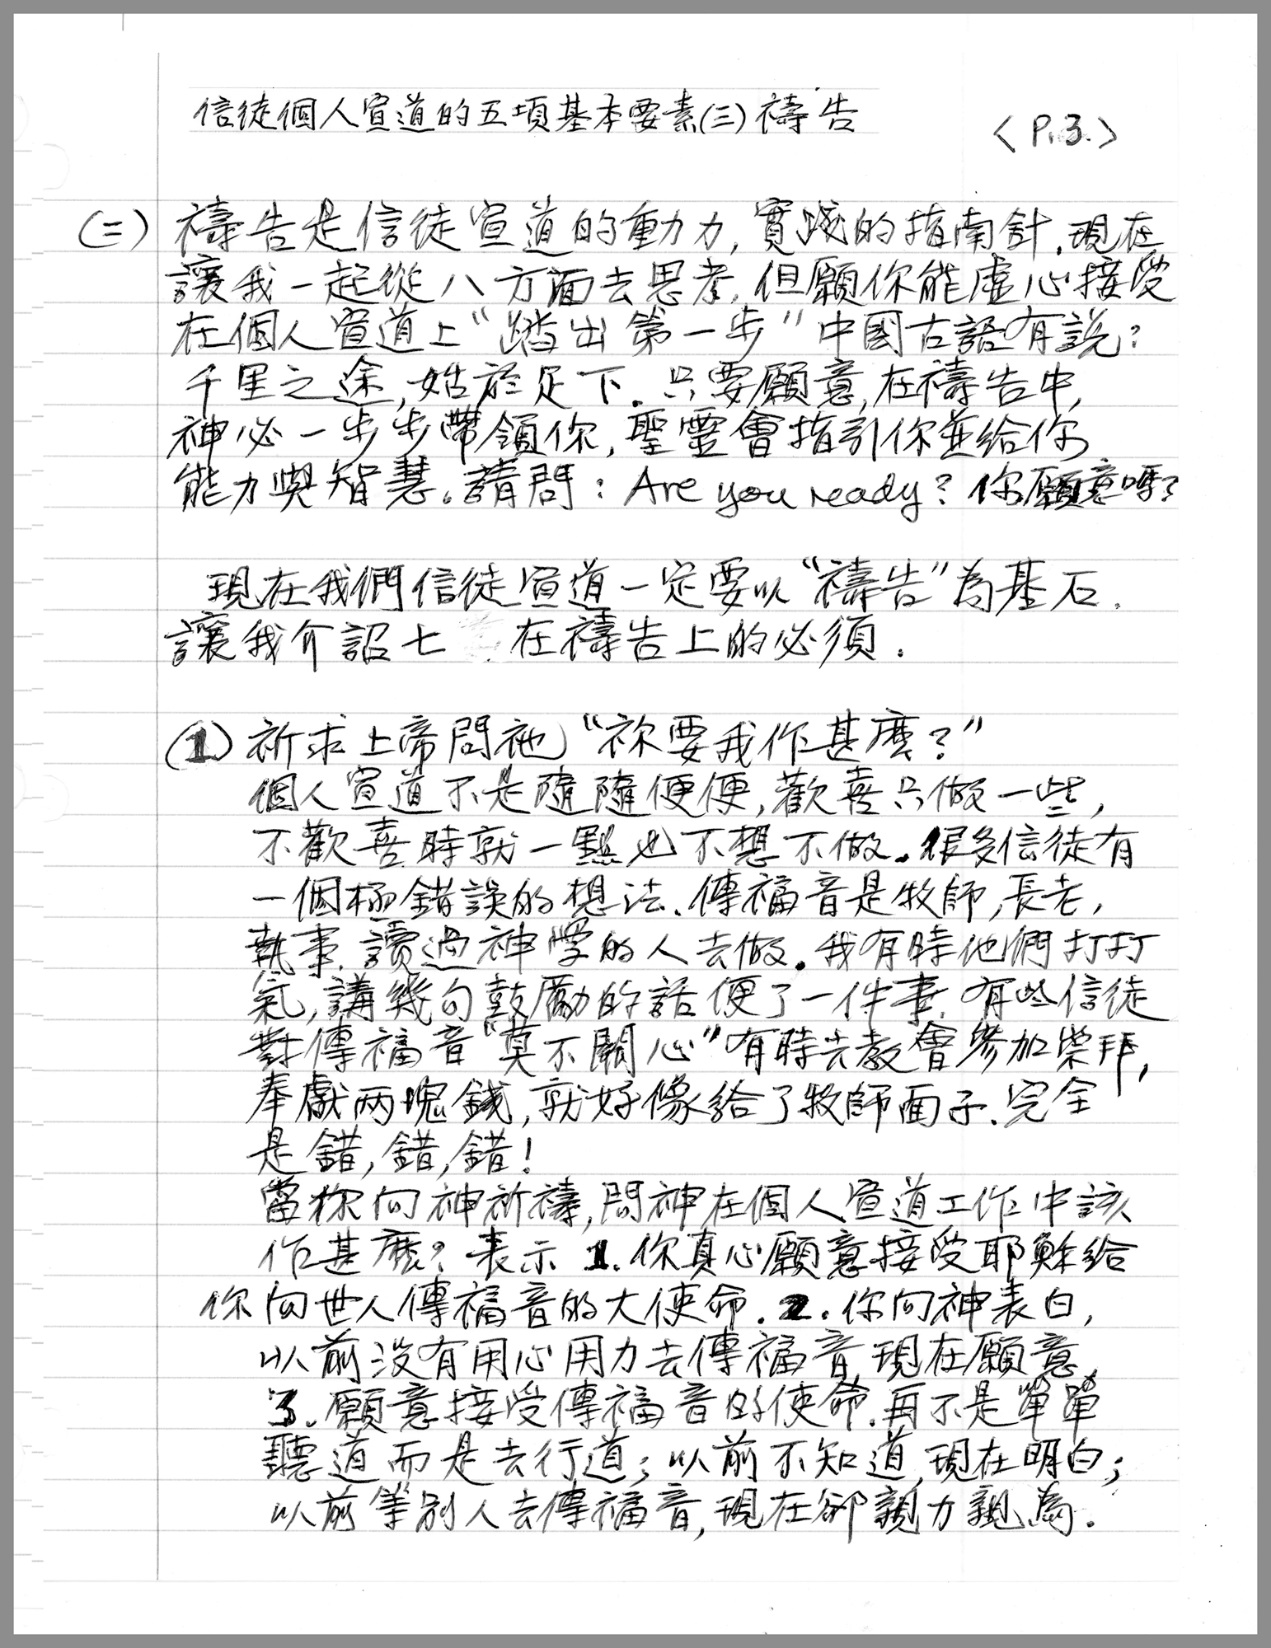 信徒個人宣道的五項基本要素(三)禱告
〈P.3.〉
(三) 禱告是信徒宣道的動力,實踐的指南針.現在
讓我一起從八方面去思考,但願你能虛心接受
在個人宣道上“踏出第一步”中國古語有説:
千里之途,始於足下.只要願意,在禱告中,
神必一步步帶領你,聖靈會指引你並給你
能力與智慧。請問: Are you ready? 你願意嗎?
現在我們信徒宣道一定要以“禱告”為基石.
讓我介詔七 在禱告上的必須.
(1) 祈求上帝問祂“祢要我作甚麼?”
個人宣道不是隨隨便便,歡喜只做一些,
不歡喜時就一點也不想不做.很多信徒有
一個極錯誤的想法.傳福音是牧師,長老,
執事.讀過神學的人去做.我有時他們打打
氣,講幾句鼓勵的話便了一件事.有些信徒
對傳福音“莫不關心”有時去教會參加崇拜,
奉獻两塊錢,就好像給了牧師面子.完全
是錯,錯,錯!
當你向神祈禱,問神在個人宣道工作中該
作甚麼?表示 1.你真心願意接受耶穌給
你向世人傳福音的大使命. 2.你向神表白,
以前没有用心用力去傳福音,現在願意.
3.願意接受傳福音的使命.再不是單單
聽道而是去行道;以前不知道,現在明白;
以前等别人去傳福音,現在卻親力親為.